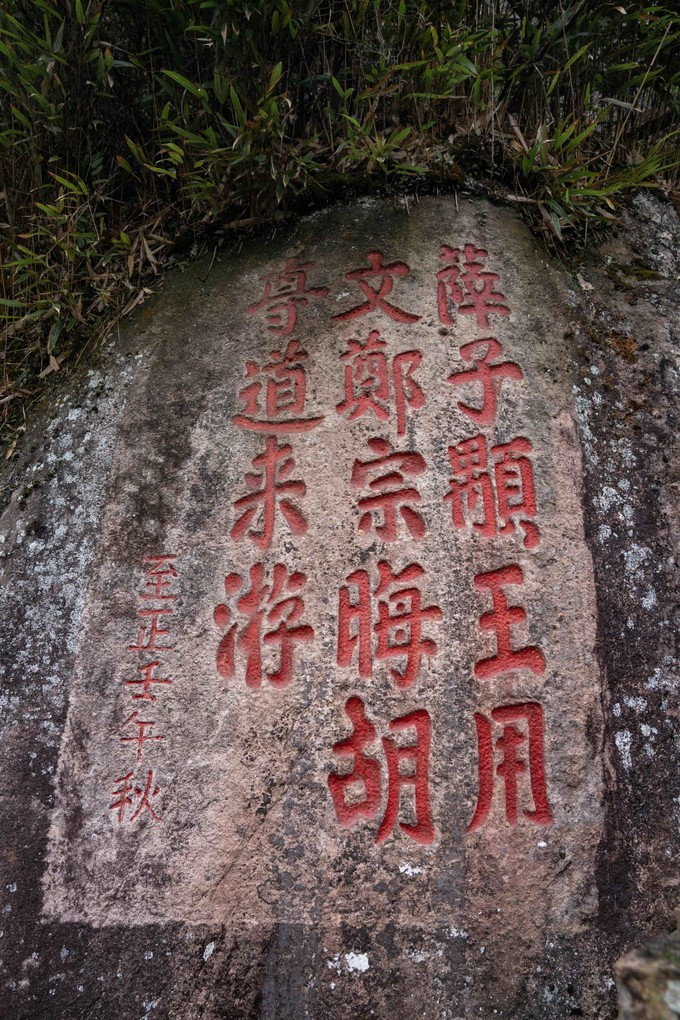 薛子顒王用
文鄭宗晦胡
尊道来游
至正壬午秋